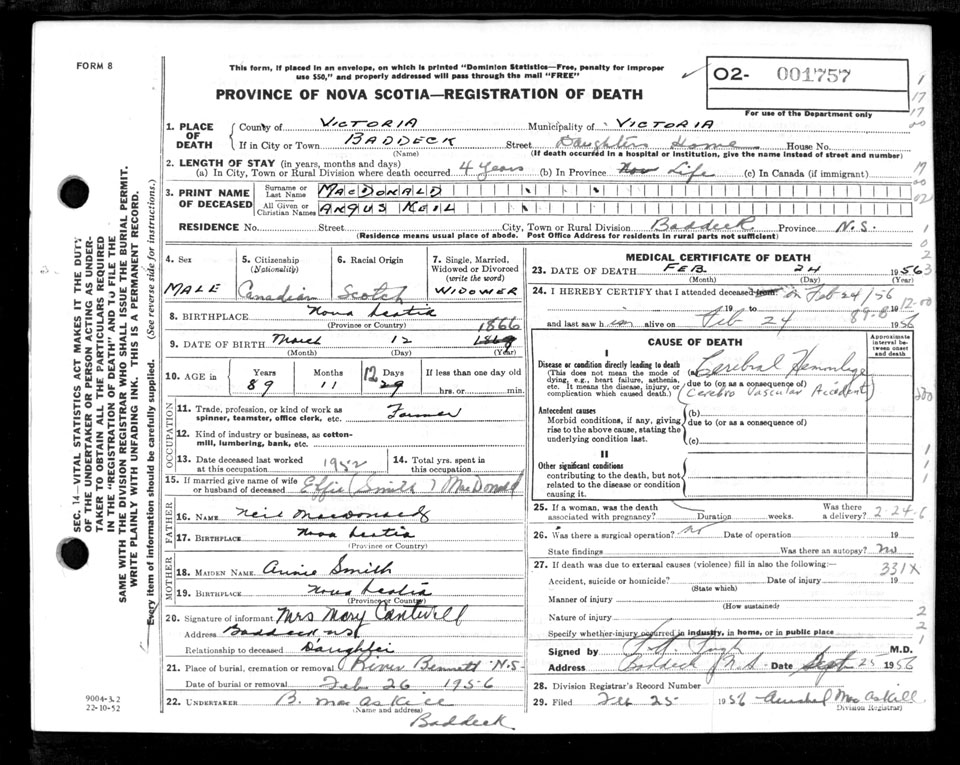 FORM 8
This form, if placed in an envelope, on which is printed "Dominion Statistics—Free, penalty for improper
use $50," and properly addressed will pass through the mail "FREE"
PROVINCE OF NOVA SCOTIA—REGISTRATION OF DEATH
O2- 001757
For use of the Department only
1. PLACE OF DEATH
County of VICTORIA Municipality of VICTORIA
If in City or Town BADDECK Street Daughters Home House No.
(Name) (If death occurred in a hospital or institution, give the name instead of street and number)
2. LENGTH OF STAY (in years, months and days)
(a) In City, Town or Rural Division where death occurred 4 years (b) In Province Life (c) In Canada (if immigrant)
3. PRINT NAME OF DECEASED
Surname or Last Name MACDONALD
All Given or Christian Names ANGUS NEIL
RESIDENCE No. Street City, Town or Rural Division Baddeck Province N.S.
(Residence means usual place of abode. Post Office Address for residents in rural parts not sufficient)
4. Sex 5. Citizenship (Nationality) 6. Racial Origin 7. Single, Married, Widowed or Divorced (write the word)
MALE Canadian Scotch WIDOWER
8. BIRTHPLACE Nova Scotia
(Province or Country)
1866
9. DATE OF BIRTH March 12
(Month) (Day) (Year)
10. AGE in Years Months Days If less than one day old
89 11 12 hrs. or min.
OCCUPATION
11. Trade, profession, or kind of work as spinner, teamster, office clerk, etc. Farmer
12. Kind of industry or business, as cotton-mill, lumbering, bank, etc.
13. Date deceased last worked at this occupation 1952 14. Total yrs. spent in this occupation
15. If married give name of wife or husband of deceased Effie (Smith) MacDonald
FATHER
16. NAME Neil MacDonald
17. BIRTHPLACE Nova Scotia
(Province or Country)
MOTHER
18. MAIDEN NAME Annie Smith
19. BIRTHPLACE Nova Scotia
(Province or Country)
20. Signature of informant Mrs Mary Cantwell
Address Baddeck NS
Relationship to deceased Daughter
21. Place of burial, cremation or removal River Bennett N.S.
Date of burial or removal Feb 26 1956
22. UNDERTAKER B. MacAskill
(Name and address)
Baddeck
MEDICAL CERTIFICATE OF DEATH
23. DATE OF DEATH FEB. 24 1956
(Month) (Day) (Year)
24. I HEREBY CERTIFY that I attended deceased from: on Feb 24/56
19 to 19
and last saw him alive on Feb 24 1956
CAUSE OF DEATH
Approximate interval between onset and death
I
Disease or condition directly leading to death
(This does not mean the mode of dying, e.g., heart failure, asthenia, etc. It means the disease, injury, or complication which caused death.)
(a) Cerebral Hemorrhage
due to (or as a consequence of)
(Cerebro Vascular Accident)
Antecedent causes
Morbid conditions, if any, giving rise to the above cause, stating the underlying condition last.
(b)
due to (or as a consequence of)
(c)
II
Other significant conditions
contributing to the death, but not related to the disease or condition causing it.
25. If a woman, was the death associated with pregnancy? Duration weeks. Was there a delivery? 2-24-6
26. Was there a surgical operation? no Date of operation 19
State findings Was there an autopsy? no
27. If death was due to external causes (violence) fill in also the following:— 331X
Accident, suicide or homicide? Date of injury 19
(State which)
Manner of injury
(How sustained)
Nature of injury
Specify whether injury occurred in industry, in home, or in public place
Signed by M.D.
Address Baddeck N.S. Date Sept 25 1956
28. Division Registrar's Record Number
29. Filed Feb 25 1956 MacAskill
Division Registrar)
SEC. 14—VITAL STATISTICS ACT MAKES IT THE DUTY
OF THE UNDERTAKER OR PERSON ACTING AS UNDER-
TAKER TO OBTAIN ALL THE PARTICULARS REQUIRED
IN THE "REGISTRATION OF DEATH" AND TO FILE THE
SAME WITH THE DIVISION REGISTRAR WHO SHALL ISSUE THE BURIAL PERMIT.
WRITE PLAINLY WITH UNFADING INK. THIS IS A PERMANENT RECORD.
Every item of information should be carefully supplied. (See reverse side for instructions.)
9004-3.2
22-10-52